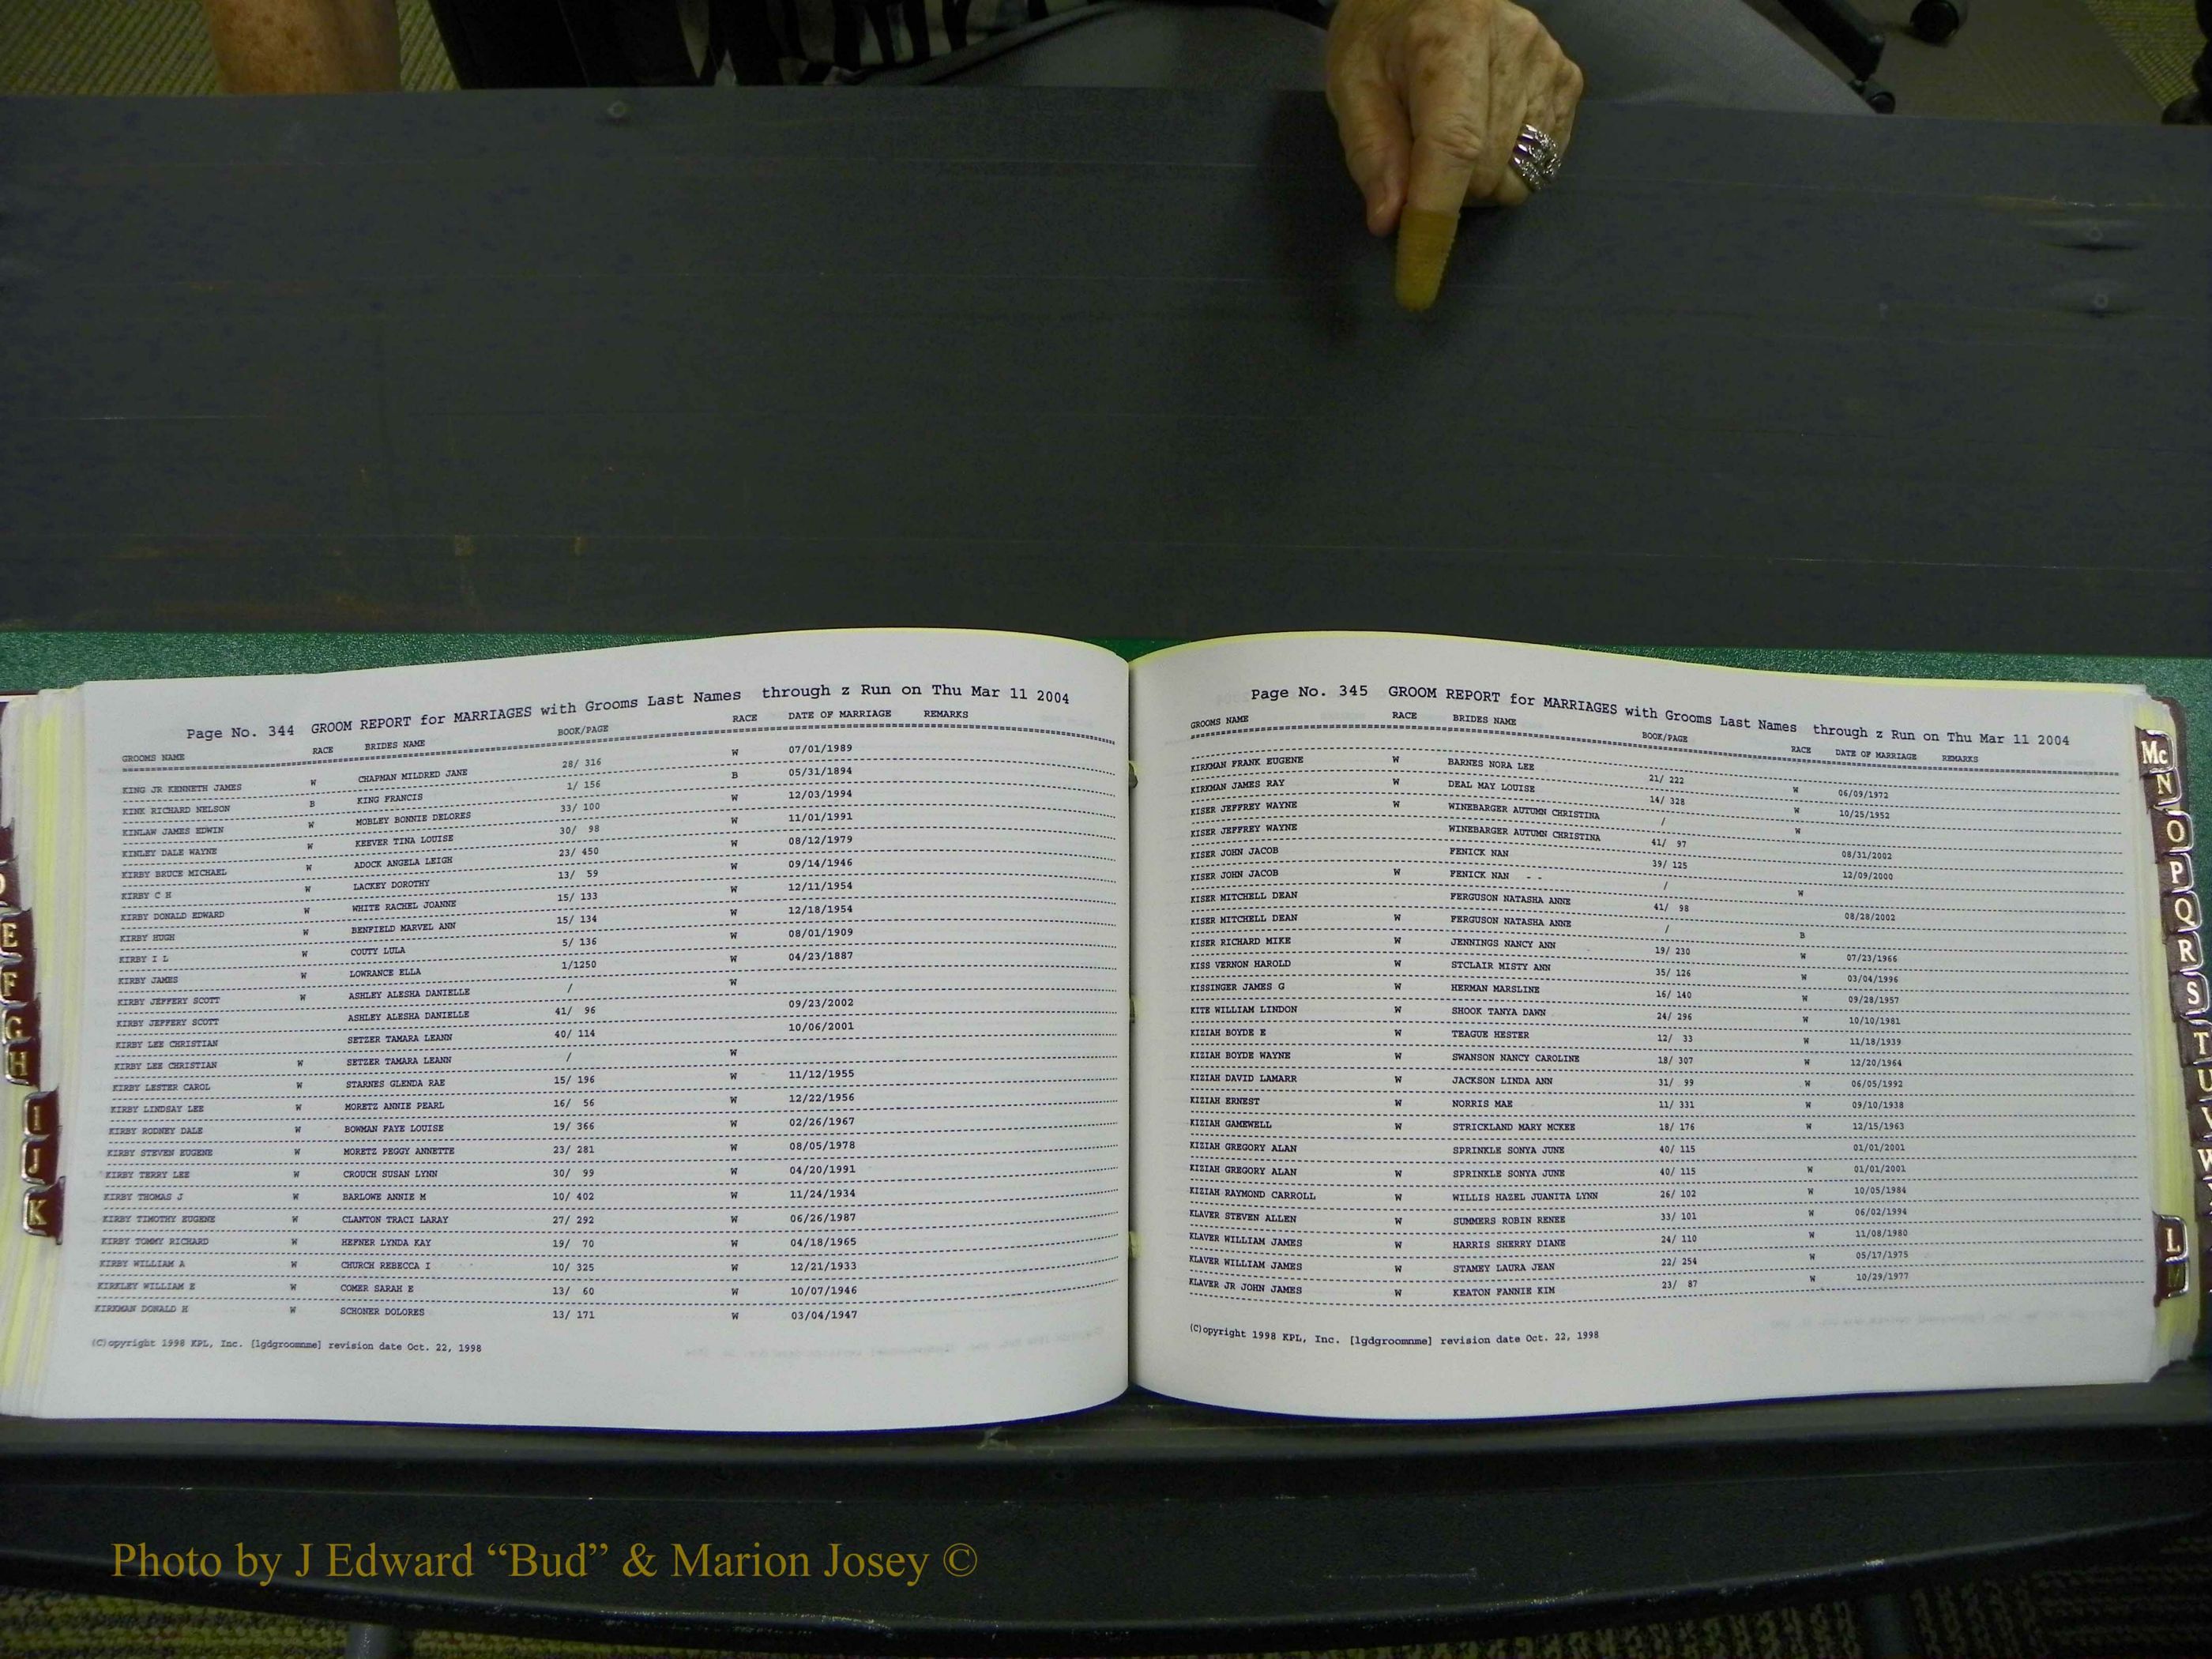 Page No. 344 GROOM REPORT for MARRIAGES with Grooms Last Names through z Run on Thu Mar 11 2004
GROOMS NAME RACE BRIDES NAME BOOK/PAGE RACE DATE OF MARRIAGE REMARKS
KING JR KENNETH JAMES W CHAPMAN MILDRED JANE 28/ 316 W 07/01/1989
KINK RICHARD NELSON B KING FRANCIS 1/ 156 B 05/31/1894
KINLAW JAMES EDWIN W MOBLEY BONNIE DELORES 33/ 100 W 12/03/1994
KINLEY DALE WAYNE W KEEVER TINA LOUISE 30/ 98 W 11/01/1991
KIRBY BRUCE MICHAEL W ADOCK ANGELA LEIGH 23/ 450 W 08/12/1979
KIRBY C H W LACKEY DOROTHY 13/ 59 W 09/14/1946
KIRBY DONALD EDWARD W WHITE RACHEL JOANNE 15/ 133 W 12/11/1954
KIRBY HUGH W BENFIELD MARVEL ANN 15/ 134 W 12/18/1954
KIRBY I L W COUTY LULA 5/ 136 W 08/01/1909
KIRBY JAMES W LOWRANCE ELLA 1/1250 W 04/23/1887
KIRBY JEFFERY SCOTT W ASHLEY ALESHA DANIELLE / W
KIRBY JEFFERY SCOTT ASHLEY ALESHA DANIELLE 41/ 96 09/23/2002
KIRBY LEE CHRISTIAN SETZER TAMARA LEANN 40/ 114 10/06/2001
KIRBY LEE CHRISTIAN W SETZER TAMARA LEANN / W
KIRBY LESTER CAROL W STARNES GLENDA RAE 15/ 196 W 11/12/1955
KIRBY LINDSAY LEE W MORETZ ANNIE PEARL 16/ 56 W 12/22/1956
KIRBY RODNEY DALE W BOWMAN FAYE LOUISE 19/ 366 W 02/26/1967
KIRBY STEVEN EUGENE W MORETZ PEGGY ANNETTE 23/ 281 W 08/05/1978
KIRBY TERRY LEE W CROUCH SUSAN LYNN 30/ 99 W 04/20/1991
KIRBY THOMAS J W BARLOWE ANNIE M 10/ 402 W 11/24/1934
KIRBY TIMOTHY EUGENE W CLANTON TRACI LARAY 27/ 292 W 06/26/1987
KIRBY TOMMY RICHARD W HEFNER LYNDA KAY 19/ 70 W 04/18/1965
KIRBY WILLIAM A W CHURCH REBECCA I 10/ 325 W 12/21/1933
KIRKLEY WILLIAM E W COMER SARAH E 13/ 60 W 10/07/1946
KIRKMAN DONALD H W SCHONER DOLORES 13/ 171 W 03/04/1947
(C)opyright 1998 KPL, Inc. [lgdgroomnme] revision date Oct. 22, 1998
Page No. 345 GROOM REPORT for MARRIAGES with Grooms Last Names through z Run on Thu Mar 11 2004
GROOMS NAME RACE BRIDES NAME BOOK/PAGE RACE DATE OF MARRIAGE REMARKS
KIRKMAN FRANK EUGENE W BARNES NORA LEE 21/ 222 W 06/09/1972
KIRKMAN JAMES RAY W DEAL MAY LOUISE 14/ 328 W 10/25/1952
KISER JEFFREY WAYNE W WINEBARGER AUTUMN CHRISTINA / W
KISER JEFFREY WAYNE WINEBARGER AUTUMN CHRISTINA 41/ 97 08/31/2002
KISER JOHN JACOB FENICK NAN 39/ 125 12/09/2000
KISER JOHN JACOB W FENICK NAN - - / W
KISER MITCHELL DEAN FERGUSON NATASHA ANNE 41/ 98 08/28/2002
KISER MITCHELL DEAN W FERGUSON NATASHA ANNE / B
KISER RICHARD MIKE W JENNINGS NANCY ANN 19/ 230 W 07/23/1966
KISS VERNON HAROLD W STCLAIR MISTY ANN 35/ 126 W 03/04/1996
KISSINGER JAMES G W HERMAN MARSLINE 16/ 140 W 09/28/1957
KITE WILLIAM LINDON W SHOOK TANYA DAWN 24/ 296 W 10/10/1981
KIZIAH BOYDE E W TEAGUE HESTER 12/ 33 W 11/18/1939
KIZIAH BOYDE WAYNE W SWANSON NANCY CAROLINE 18/ 307 W 12/20/1964
KIZIAH DAVID LAMARR W JACKSON LINDA ANN 31/ 99 W 06/05/1992
KIZIAH ERNEST W NORRIS MAE 11/ 331 W 09/10/1938
KIZIAH GAMEWELL W STRICKLAND MARY MCKEE 18/ 176 W 12/15/1963
KIZIAH GREGORY ALAN SPRINKLE SONYA JUNE 40/ 115 01/01/2001
KIZIAH GREGORY ALAN W SPRINKLE SONYA JUNE 40/ 115 W 01/01/2001
KIZIAH RAYMOND CARROLL W WILLIS HAZEL JUANITA LYNN 26/ 102 W 10/05/1984
KLAVER STEVEN ALLEN W SUMMERS ROBIN RENEE 33/ 101 W 06/02/1994
KLAVER WILLIAM JAMES W HARRIS SHERRY DIANE 24/ 110 W 11/08/1980
KLAVER WILLIAM JAMES W STAMEY LAURA JEAN 22/ 254 W 05/17/1975
KLAVER JR JOHN JAMES W KEATON FANNIE KIM 23/ 87 W 10/29/1977
(C)opyright 1998 KPL, Inc. [lgdgroomnme] revision date Oct. 22, 1998
E
F
G
H
I
J
K
Mc
N
O
P
Q
R
S
T
U
V
W
L
M
Photo by J Edward “Bud” & Marion Josey ©